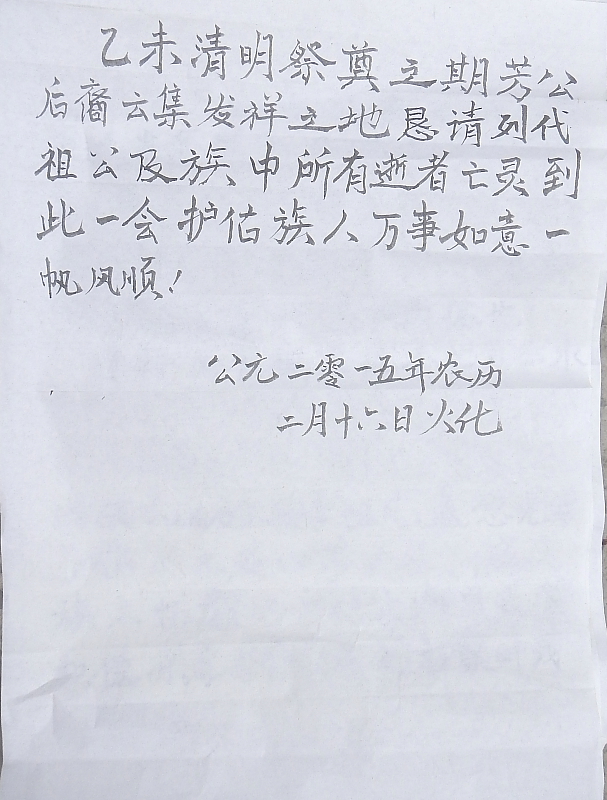 乙未清明祭奠之期芳公
后裔云集发祥之地恳请列代
祖公及族中所有逝者亡灵到
此一会护佑族人万事如意一
帆风顺！
公元二零一五年农历
二月十六日火化